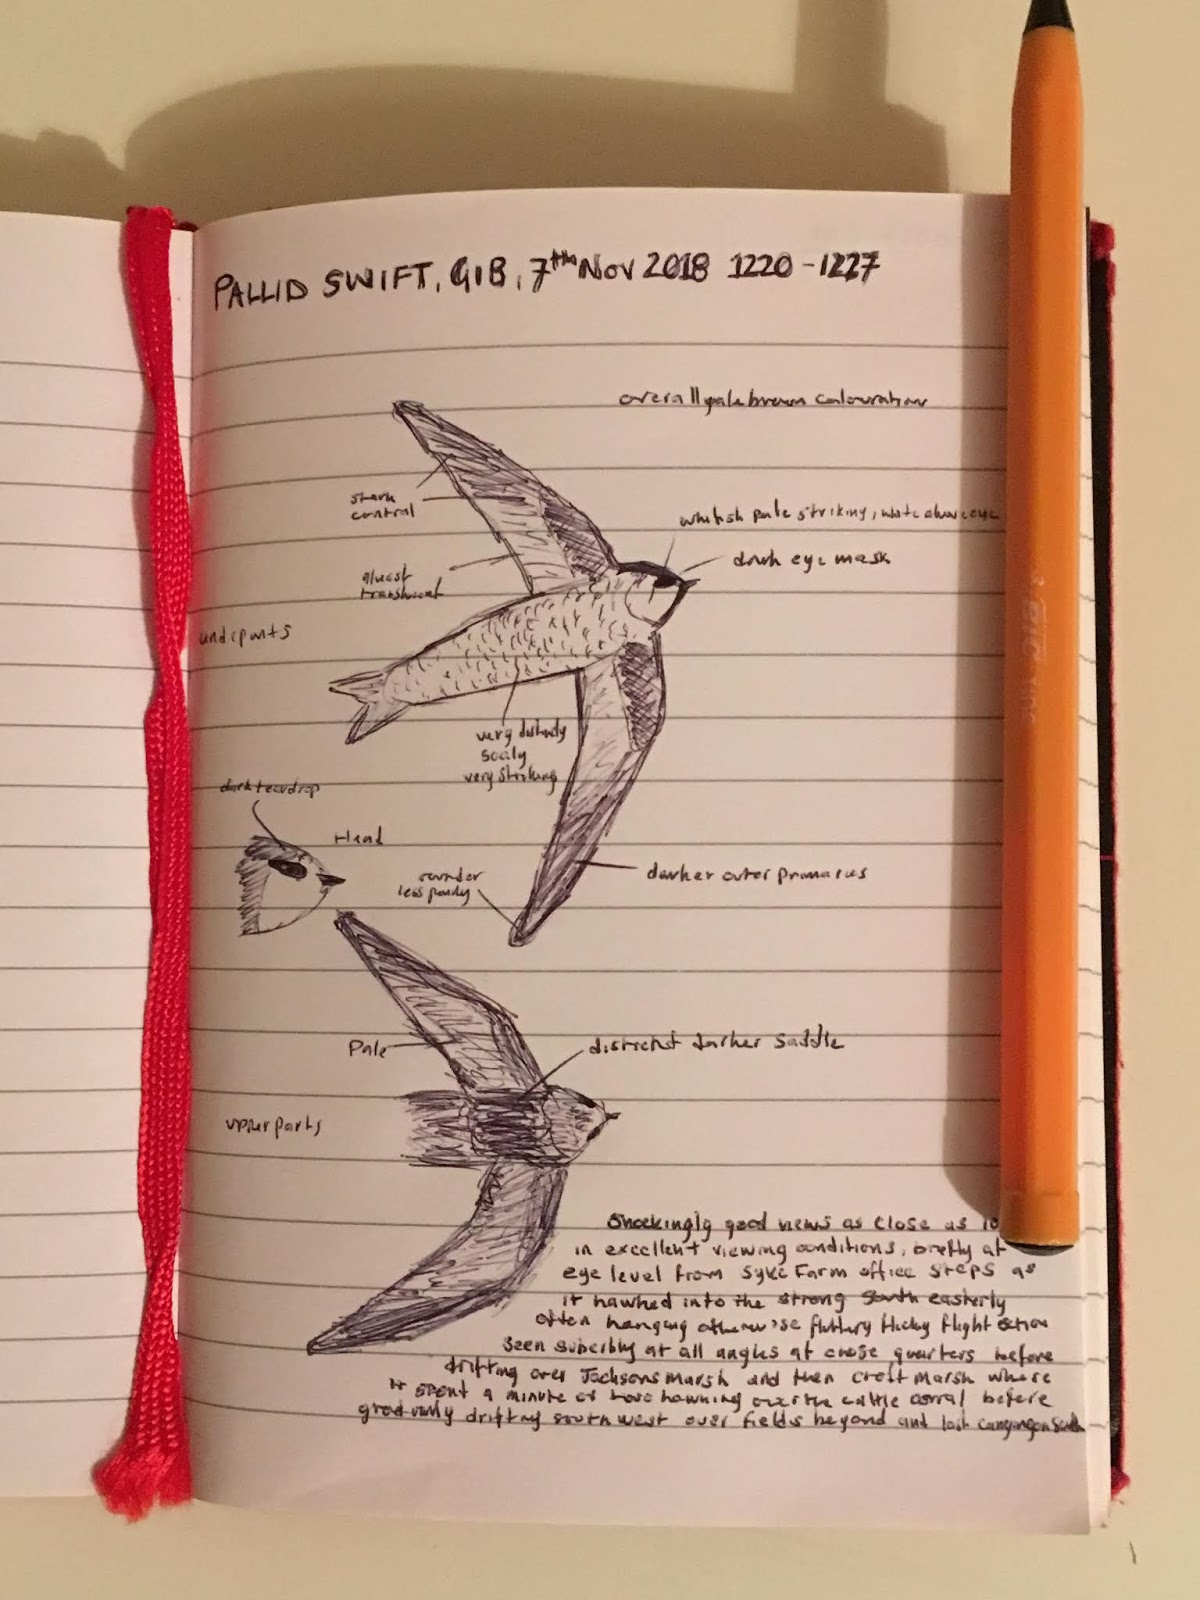 PALLID SWIFT, GIB, 7th Nov 2018 1220-1227
overall pale brown colouration
stark
whitish pale striking, white above eye
dark eye mask
almost
translucent
underparts
very distinctly
scaly
very striking
dark teardrop
Head
rounder
less pointy
darker outer primaries
Pale
distinct darker saddle
upper parts
Shockingly good views as close as 10
in excellent viewing conditions, briefly at
eye level from Syke Farm office steps as
it hawked into the strong South easterly
often hanging otherwise fluttery flicky flight action
seen superbly at all angles at close quarters before
drifting over Jacksons Marsh and then Croft Marsh where
it spent a minute or two hawking over the cattle corral before
gradually drifting south west over fields beyond and lost
BIC